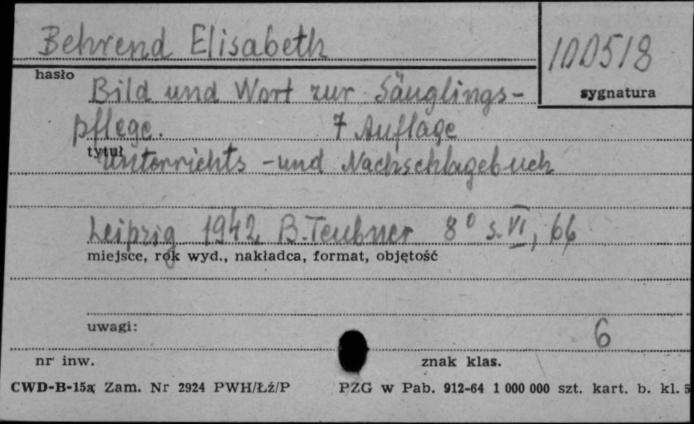 Behrend Elisabeth
100518
hasło
sygnatura
Bild und Wort zur Säuglings-
pflege. 7 Auflage
tytuł
Unterrichts - und Nachschlagebuch
Leipzig 1942 B. Teubner 8° s. VI, 66
miejsce, rok wyd., nakładca, format, objętość
uwagi:
6
nr inw. znak klas.
CWD-B-15a Zam. Nr 2924 PWH/Łź/P PZG w Pab. 912-64 1 000 000 szt. kart. b. kl. 5